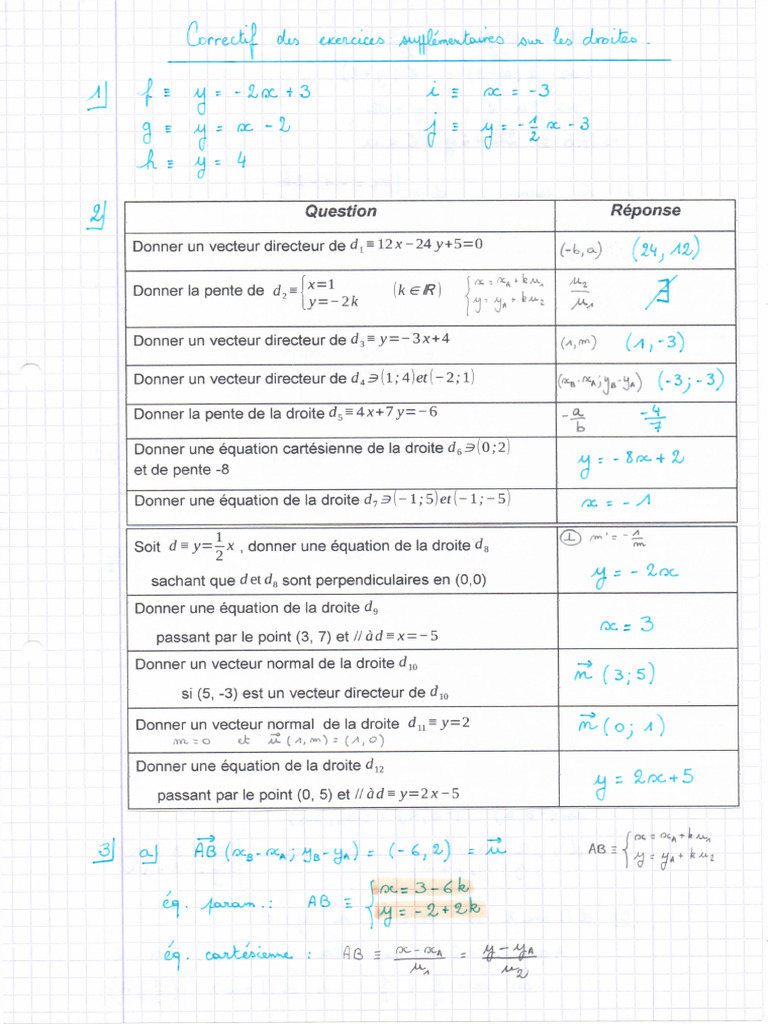 Correctif des exercices supplémentaires sur les droites.
1] f ≡ y = -2x + 3 i ≡ x = -3
g ≡ y = x - 2 j ≡ y = -1/2 x - 3
h ≡ y = 4
2] Question Réponse
Donner un vecteur directeur de d₁≡12x−24y+5=0 (-b, a) (24, 12)
Donner la pente de d₂≡{x=1 y=−2k (k∈ℝ) {x = xA + k u₁ y = yA + k u₂ u₂/u₁ ∄
Donner un vecteur directeur de d₃≡y=−3x+4 (1, m) (1, -3)
Donner un vecteur directeur de d₄∋(1;4)et(−2;1) (xB - xA ; yB - yA) (-3 ; -3)
Donner la pente de la droite d₅≡4x+7y=−6 -a/b -4/7
Donner une équation cartésienne de la droite d₆∋(0;2)
et de pente -8 y = -8x + 2
Donner une équation de la droite d₇∋(−1;5)et(−1;−5) x = -1
Soit d≡y=1/2 x , donner une équation de la droite d₈ ⊥ m' = -1/m
sachant que d et d₈ sont perpendiculaires en (0,0) y = -2x
Donner une équation de la droite d₉
passant par le point (3, 7) et // à d≡x=−5 x = 3
Donner un vecteur normal de la droite d₁₀
si (5, -3) est un vecteur directeur de d₁₀ n⃗ (3 ; 5)
Donner un vecteur normal de la droite d₁₁≡y=2 n⃗ (0 ; 1)
m = 0 et u⃗ (1, m) = (1, 0)
Donner une équation de la droite d₁₂
passant par le point (0, 5) et // à d≡y=2x−5 y = 2x + 5
3] a) AB⃗ (xB - xA ; yB - yA) = (-6, 2) = u⃗ AB ≡ {x = xA + k u₁ y = yA + k u₂
éq. param. : AB ≡ {x = 3 - 6k y = -2 + 2k
éq. cartésienne : AB ≡ (x - xA)/u₁ = (y - yA)/u₂